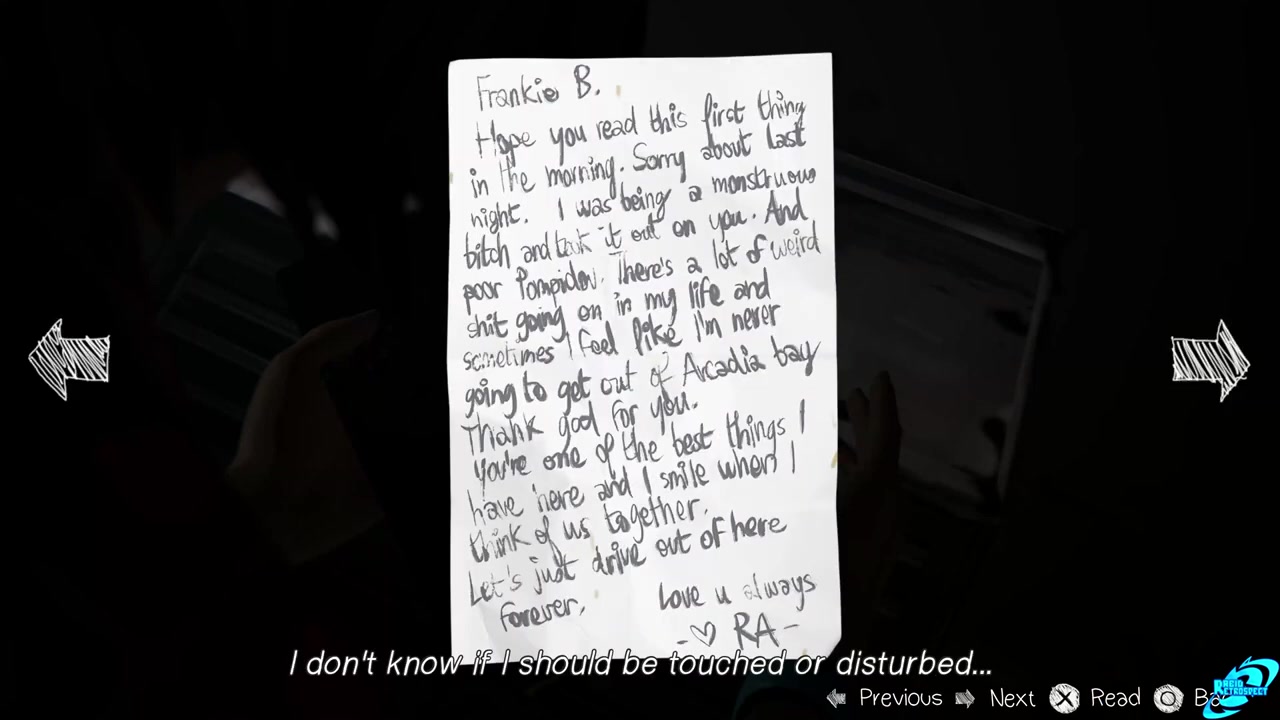 Frankie B.
Hope you read this first thing
in the morning. Sorry about last
night. I was being a monstruous
bitch and took it out on you. And
poor Pompidou. There's a lot of weird
shit going on in my life and
sometimes I feel like I'm never
going to get out of Arcadia bay
Thank god for you.
You're one of the best things I
have here and I smile when I
think of us together.
Let's just drive out of here
forever.
Love u always
- ♡ RA -
I don't know if I should be touched or disturbed...
Previous Next Read
RETROSPECT